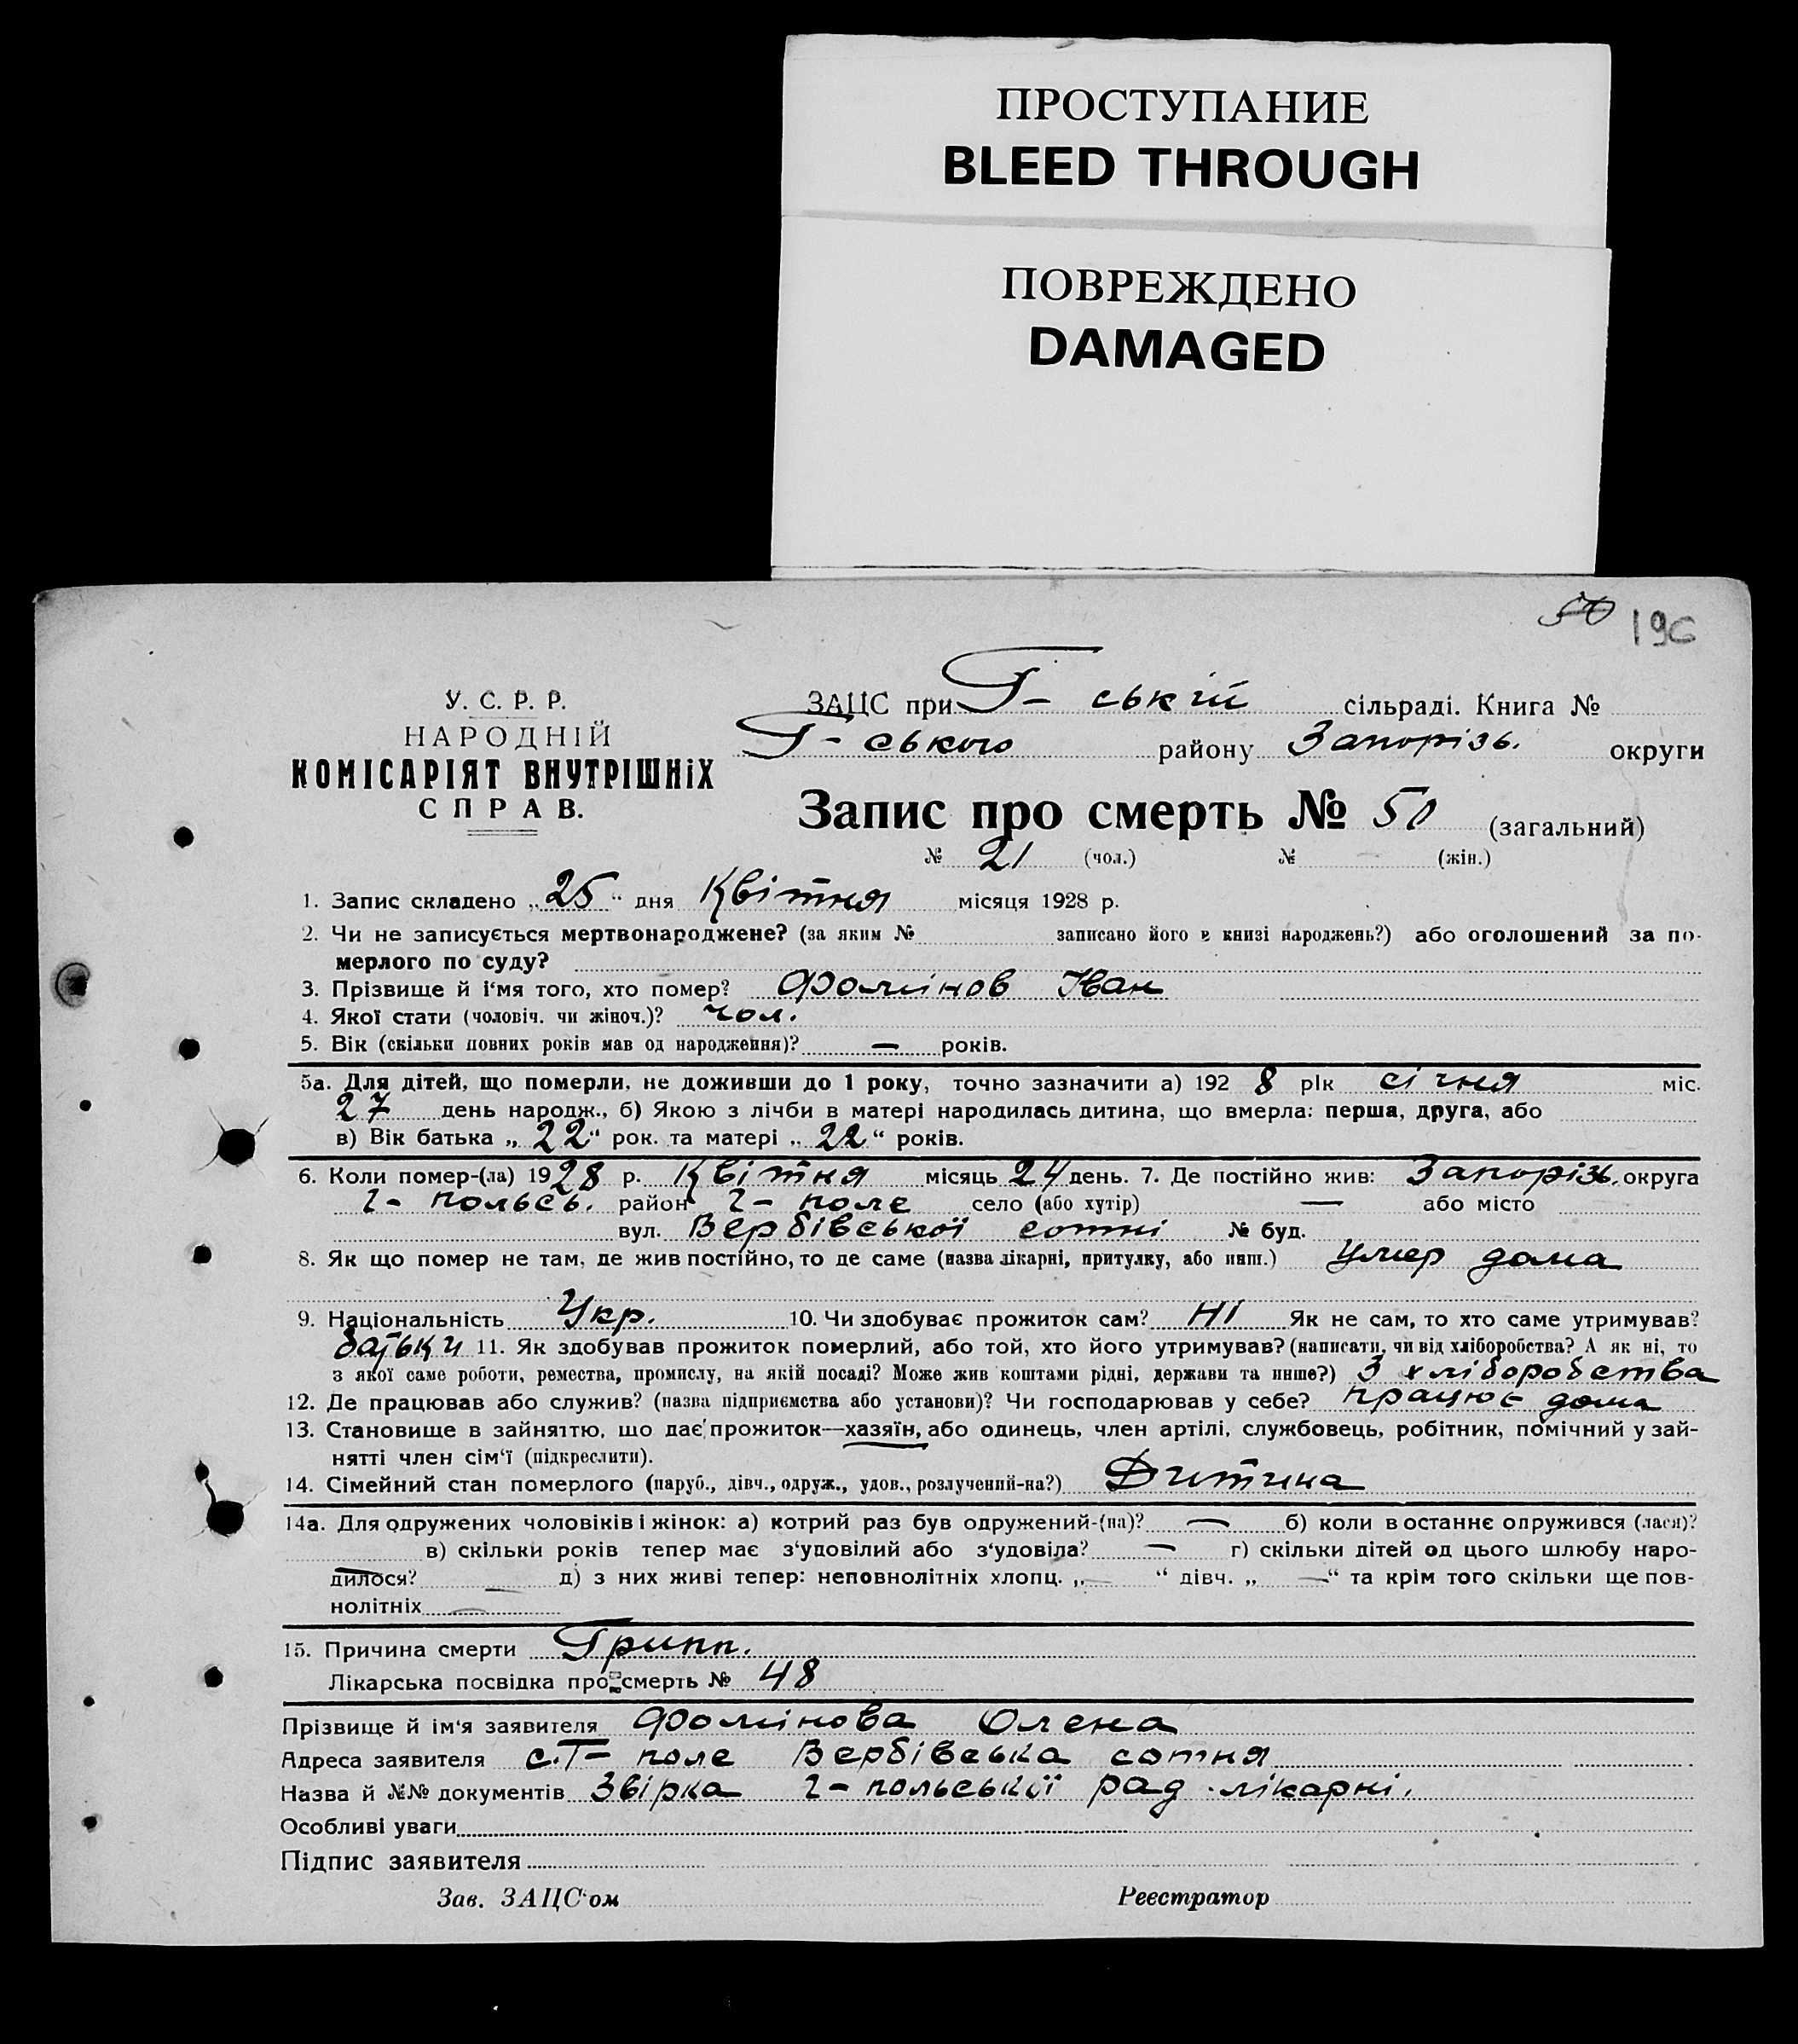 ПРОСТУПАНИЕ
BLEED THROUGH
ПОВРЕЖДЕНО
DAMAGED
50 196
У. С. Р. Р.
НАРОДНІЙ
КОМІСАРІЯТ ВНУТРІШНіХ
СПРАВ.
ЗАЦС при Г- ській сільраді. Книга №
Г- ського району Запорізь. округи
Запис про смерть № 50 (загальний)
№ 21 (чол.) № — (жін.)
1. Запис складено „25“ дня Квітня місяця 1928 р.
2. Чи не записується мертвонароджене? (за яким № записано його в книзі народжень?) або оголошений за по-
мерлого по суду?
3. Прізвище й і‘мя того, хто помер? Фомінов Іван
4. Якої стати (чоловіч. чи жіноч.)? чол.
5. Вік (скільки повних років мав од народження)? — років.
5а. Для дітей, що померли, не доживши до 1 року, точно зазначити а) 192 8 рік січня міс.
27 день народж., б) Якою з лічби в матері народилась дитина, що вмерла: перша, друга, або
в) Вік батька „22“ рок. та матері „22“ років.
6. Коли помер-(ла) 1928 р. Квітня місяць 24 день. 7. Де постійно жив: Запорізь. округа
г- польсь. район г- поле село (або хутір) — або місто
вул. Вербівської сотні № буд.
8. Як що помер не там, де жив постійно, то де саме (назва лікарні, притулку, або инш.) умер дома
9. Національність Укр. 10. Чи здобуває прожиток сам? Ні Як не сам, то хто саме утримував?
батьки 11. Як здобував прожиток померлий, або той, хто його утримував? (написати, чи від хліборобства? А як ні, то
з якої саме роботи, ремества, промислу, на якій посаді? Може жив коштами рідні, держави та инше?) З хліборобства
12. Де працював або служив? (назва підприємства або установи)? Чи господарював у себе? працює дома
13. Становище в зайняттю, що дає прожиток—хазяїн, або одинець, член артілі, службовець, робітник, помічний у зай-
нятті член сім‘ї (підкреслити).
14. Сімейний стан померлого (паруб., дівч., одруж., удов., розлучений-на?) Дитина
14а. Для одружених чоловіків і жінок: а) котрий раз був одружений-(на)? — б) коли в останнє одружився (лася)?
в) скільки років тепер має з‘удовілий або з‘удовіла? — г) скільки дітей од цього шлюбу наро-
дилося? — д) з них живі тепер: неповнолітніх хлопц. „—“ дівч. „—“ та крім того скільки ще пов-
нолітніх —
15. Причина смерти Грипп.
Лікарська посвідка про смерть № 48
Прізвище й ім‘я заявителя Фомінова Олена
Адреса заявителя с. Г- поле Вербівська сотня
Назва й №№ документів Звірка г- польської рад. лікарні.
Особливі уваги
Підпис заявителя
Зав. ЗАЦС‘ом Реєстратор